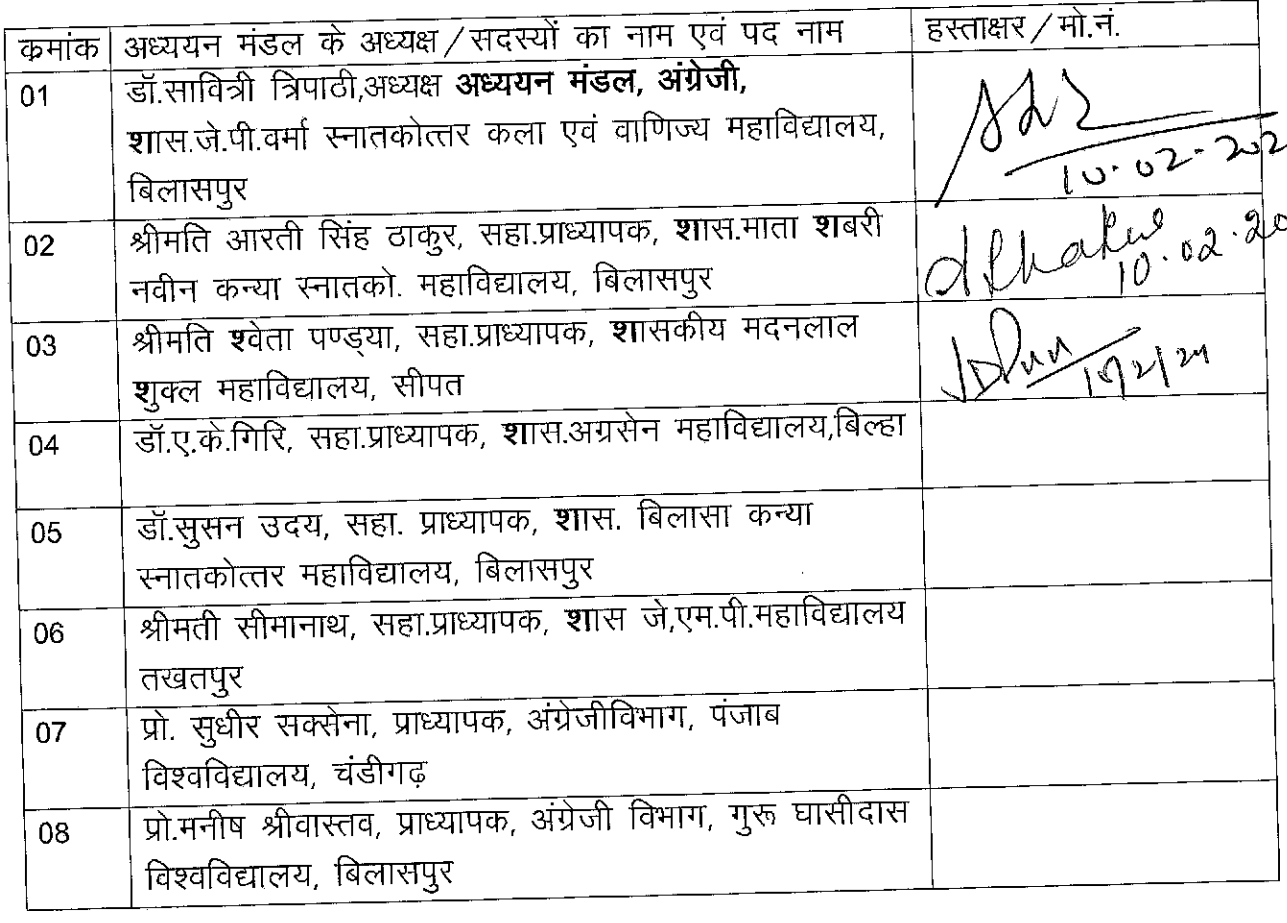 क्रमांक अध्ययन मंडल के अध्यक्ष/सदस्यों का नाम एवं पद नाम हस्ताक्षर/मो.नं.
01 डॉ.सावित्री त्रिपाठी,अध्यक्ष अध्ययन मंडल, अंग्रेजी,
शास.जे.पी.वर्मा स्नातकोत्तर कला एवं वाणिज्य महाविद्यालय,
बिलासपुर
10.02-202
02 श्रीमति आरती सिंह ठाकुर, सहा.प्राध्यापक, शास.माता शबरी
नवीन कन्या स्नातको. महाविद्यालय, बिलासपुर
10.02.20
03 श्रीमति श्वेता पण्ड्या, सहा.प्राध्यापक, शासकीय मदनलाल
शुक्ल महाविद्यालय, सीपत
04 डॉ.ए.के.गिरि, सहा.प्राध्यापक, शास.अग्रसेन महाविद्यालय,बिल्हा
05 डॉ.सुसन उदय, सहा. प्राध्यापक, शास. बिलासा कन्या
स्नातकोत्तर महाविद्यालय, बिलासपुर
06 श्रीमती सीमानाथ, सहा.प्राध्यापक, शास जे,एम.पी.महाविद्यालय
तखतपुर
07 प्रो. सुधीर सक्सेना, प्राध्यापक, अंग्रेजीविभाग, पंजाब
विश्वविद्यालय, चंडीगढ़
08 प्रो.मनीष श्रीवास्तव, प्राध्यापक, अंग्रेजी विभाग, गुरू घासीदास
विश्वविद्यालय, बिलासपुर